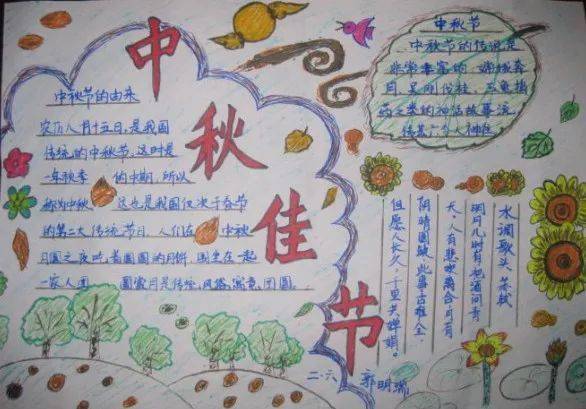 中秋佳节
中秋节的由来
农历八月十五日,是我国
传统的中秋节。这时是
一年秋季 的中期,所以
称为中秋 这也是我国仅次于春节
的第二大传统节日,人们在 中秋
月圆之夜时,看圆圆的月饼,围坐在一起
一家人团 圆赏月是传统,风俗,寓意,团圆。
中秋节
中秋节的传说是
非常丰富的,嫦娥奔
月,吴刚伐桂,玉兔捣
药之类的神话故事流
传甚广
水调歌头 苏轼
明月几时有 把酒问青
天。人有悲欢离合月有
阴晴圆缺,此事古难全
但愿人长久,千里共婵娟。
二.六 郭明瑞